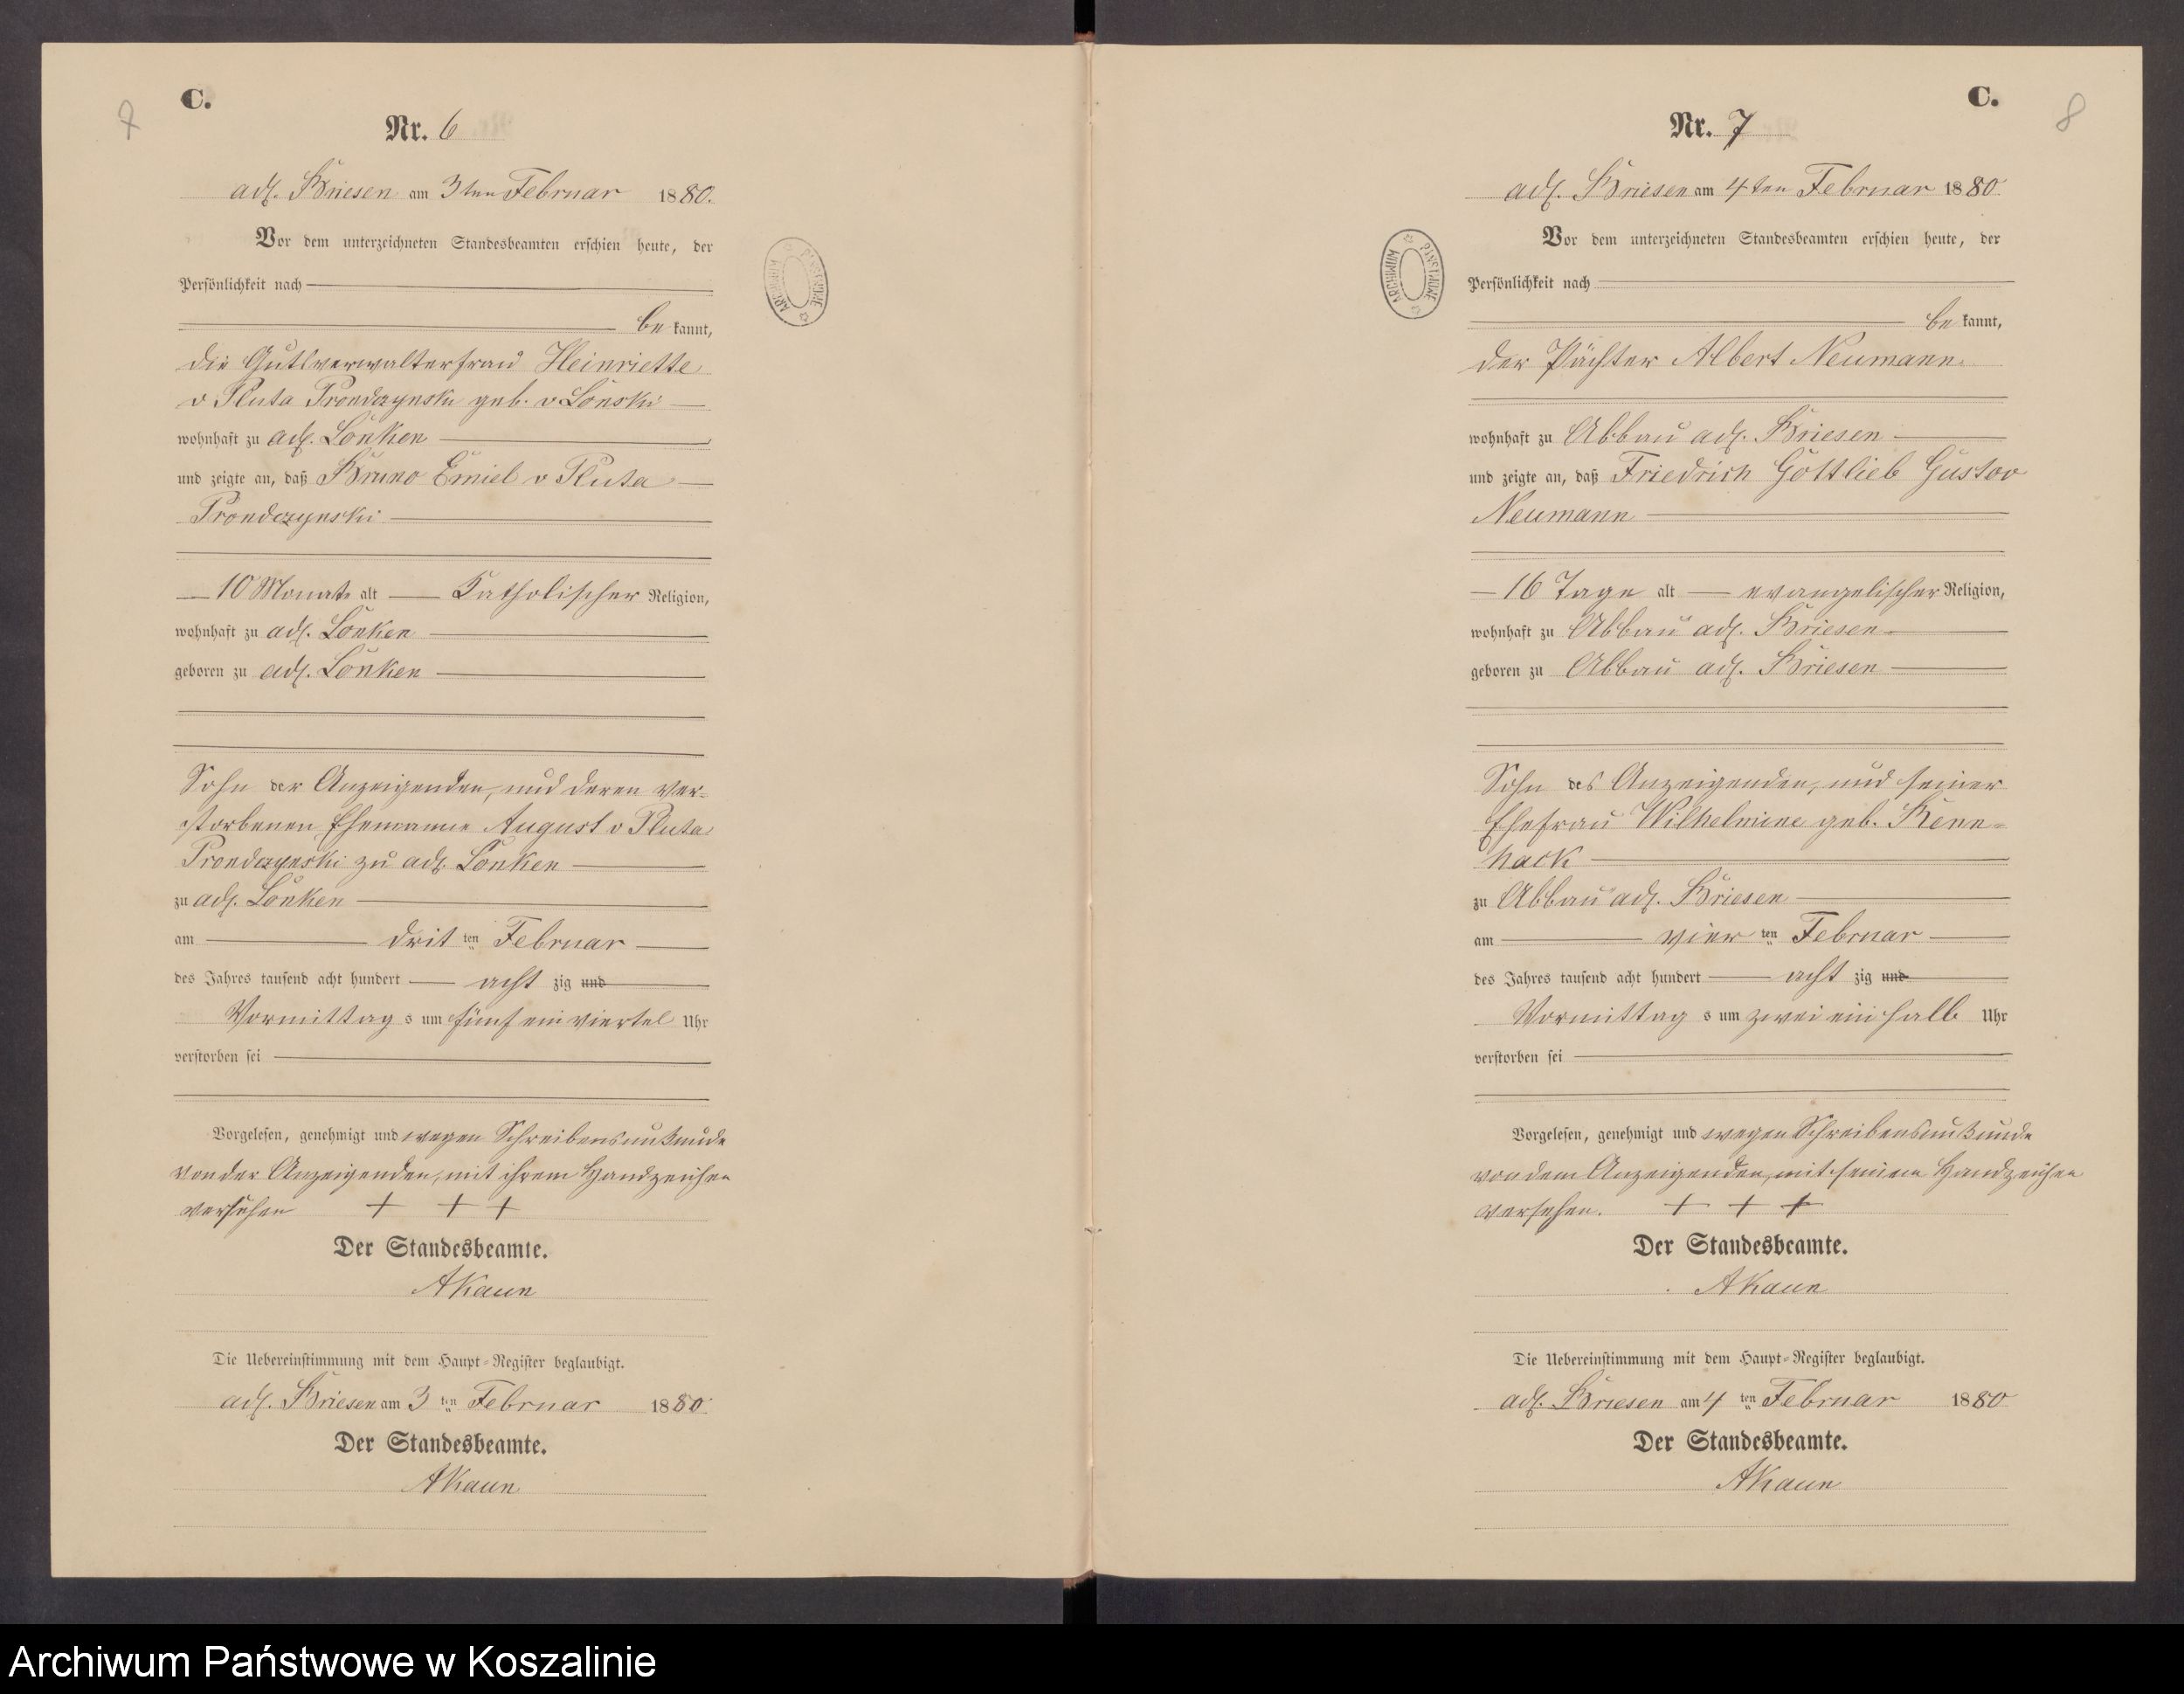 7
C.
Nr. 6
adl. Briesen am 3ten Februar 1880.
Vor dem unterzeichneten Standesbeamten erschien heute, der
Persönlichkeit nach
be kannt,
die Gutsverwalterfrau Heinriette
v Pluta Prondczynski geb. v Lonski
wohnhaft zu adl. Lonken
und zeigte an, daß Bruno Emiel v Pluta
Prondczynski
10 Monate alt Katholischer Religion,
wohnhaft zu adl. Lonken
geboren zu adl. Lonken
Sohn der Anzeigenden, und deren ver-
storbenen Ehemanne August v Pluta
Prondczynski zu adl. Lonken
zu adl. Lonken
am drit ten Februar
des Jahres tausend acht hundert acht zig und
Vormittag s um fünf ein viertel Uhr
verstorben sei
Vorgelesen, genehmigt und wegen Schreibensunkunde
von der Anzeigenden, mit ihrem Handzeichen
versehen + + +
Der Standesbeamte.
AKaun
Die Uebereinstimmung mit dem Haupt-Register beglaubigt.
adl. Briesen am 3 ten Februar 1880.
Der Standesbeamte.
AKaun
ARCHIWUM PAŃSTWOWE
C.
8
Nr. 7
adl. Briesen am 4ten Februar 1880.
Vor dem unterzeichneten Standesbeamten erschien heute, der
Persönlichkeit nach
be kannt,
der Pächter Albert Neumann
wohnhaft zu Abbau adl. Briesen
und zeigte an, daß Friedrich Gottlieb Gustav
Neumann
16 Tage alt evangelischer Religion,
wohnhaft zu Abbau adl. Briesen
geboren zu Abbau adl. Briesen
Sohn des Anzeigenden, und seiner
Ehefrau Wilhelmine geb. Renn-
hack
zu Abbau adl. Briesen
am vier ten Februar
des Jahres tausend acht hundert acht zig und
Vormittag s um zwei ein halb Uhr
verstorben sei
Vorgelesen, genehmigt und wegen Schreibensunkunde
von dem Anzeigenden, mit seinem Handzeichen
versehen. + + +
Der Standesbeamte.
AKaun
Die Uebereinstimmung mit dem Haupt-Register beglaubigt.
adl. Briesen am 4 ten Februar 1880
Der Standesbeamte.
AKaun
ARCHIWUM PAŃSTWOWE
Archiwum Państwowe w Koszalinie